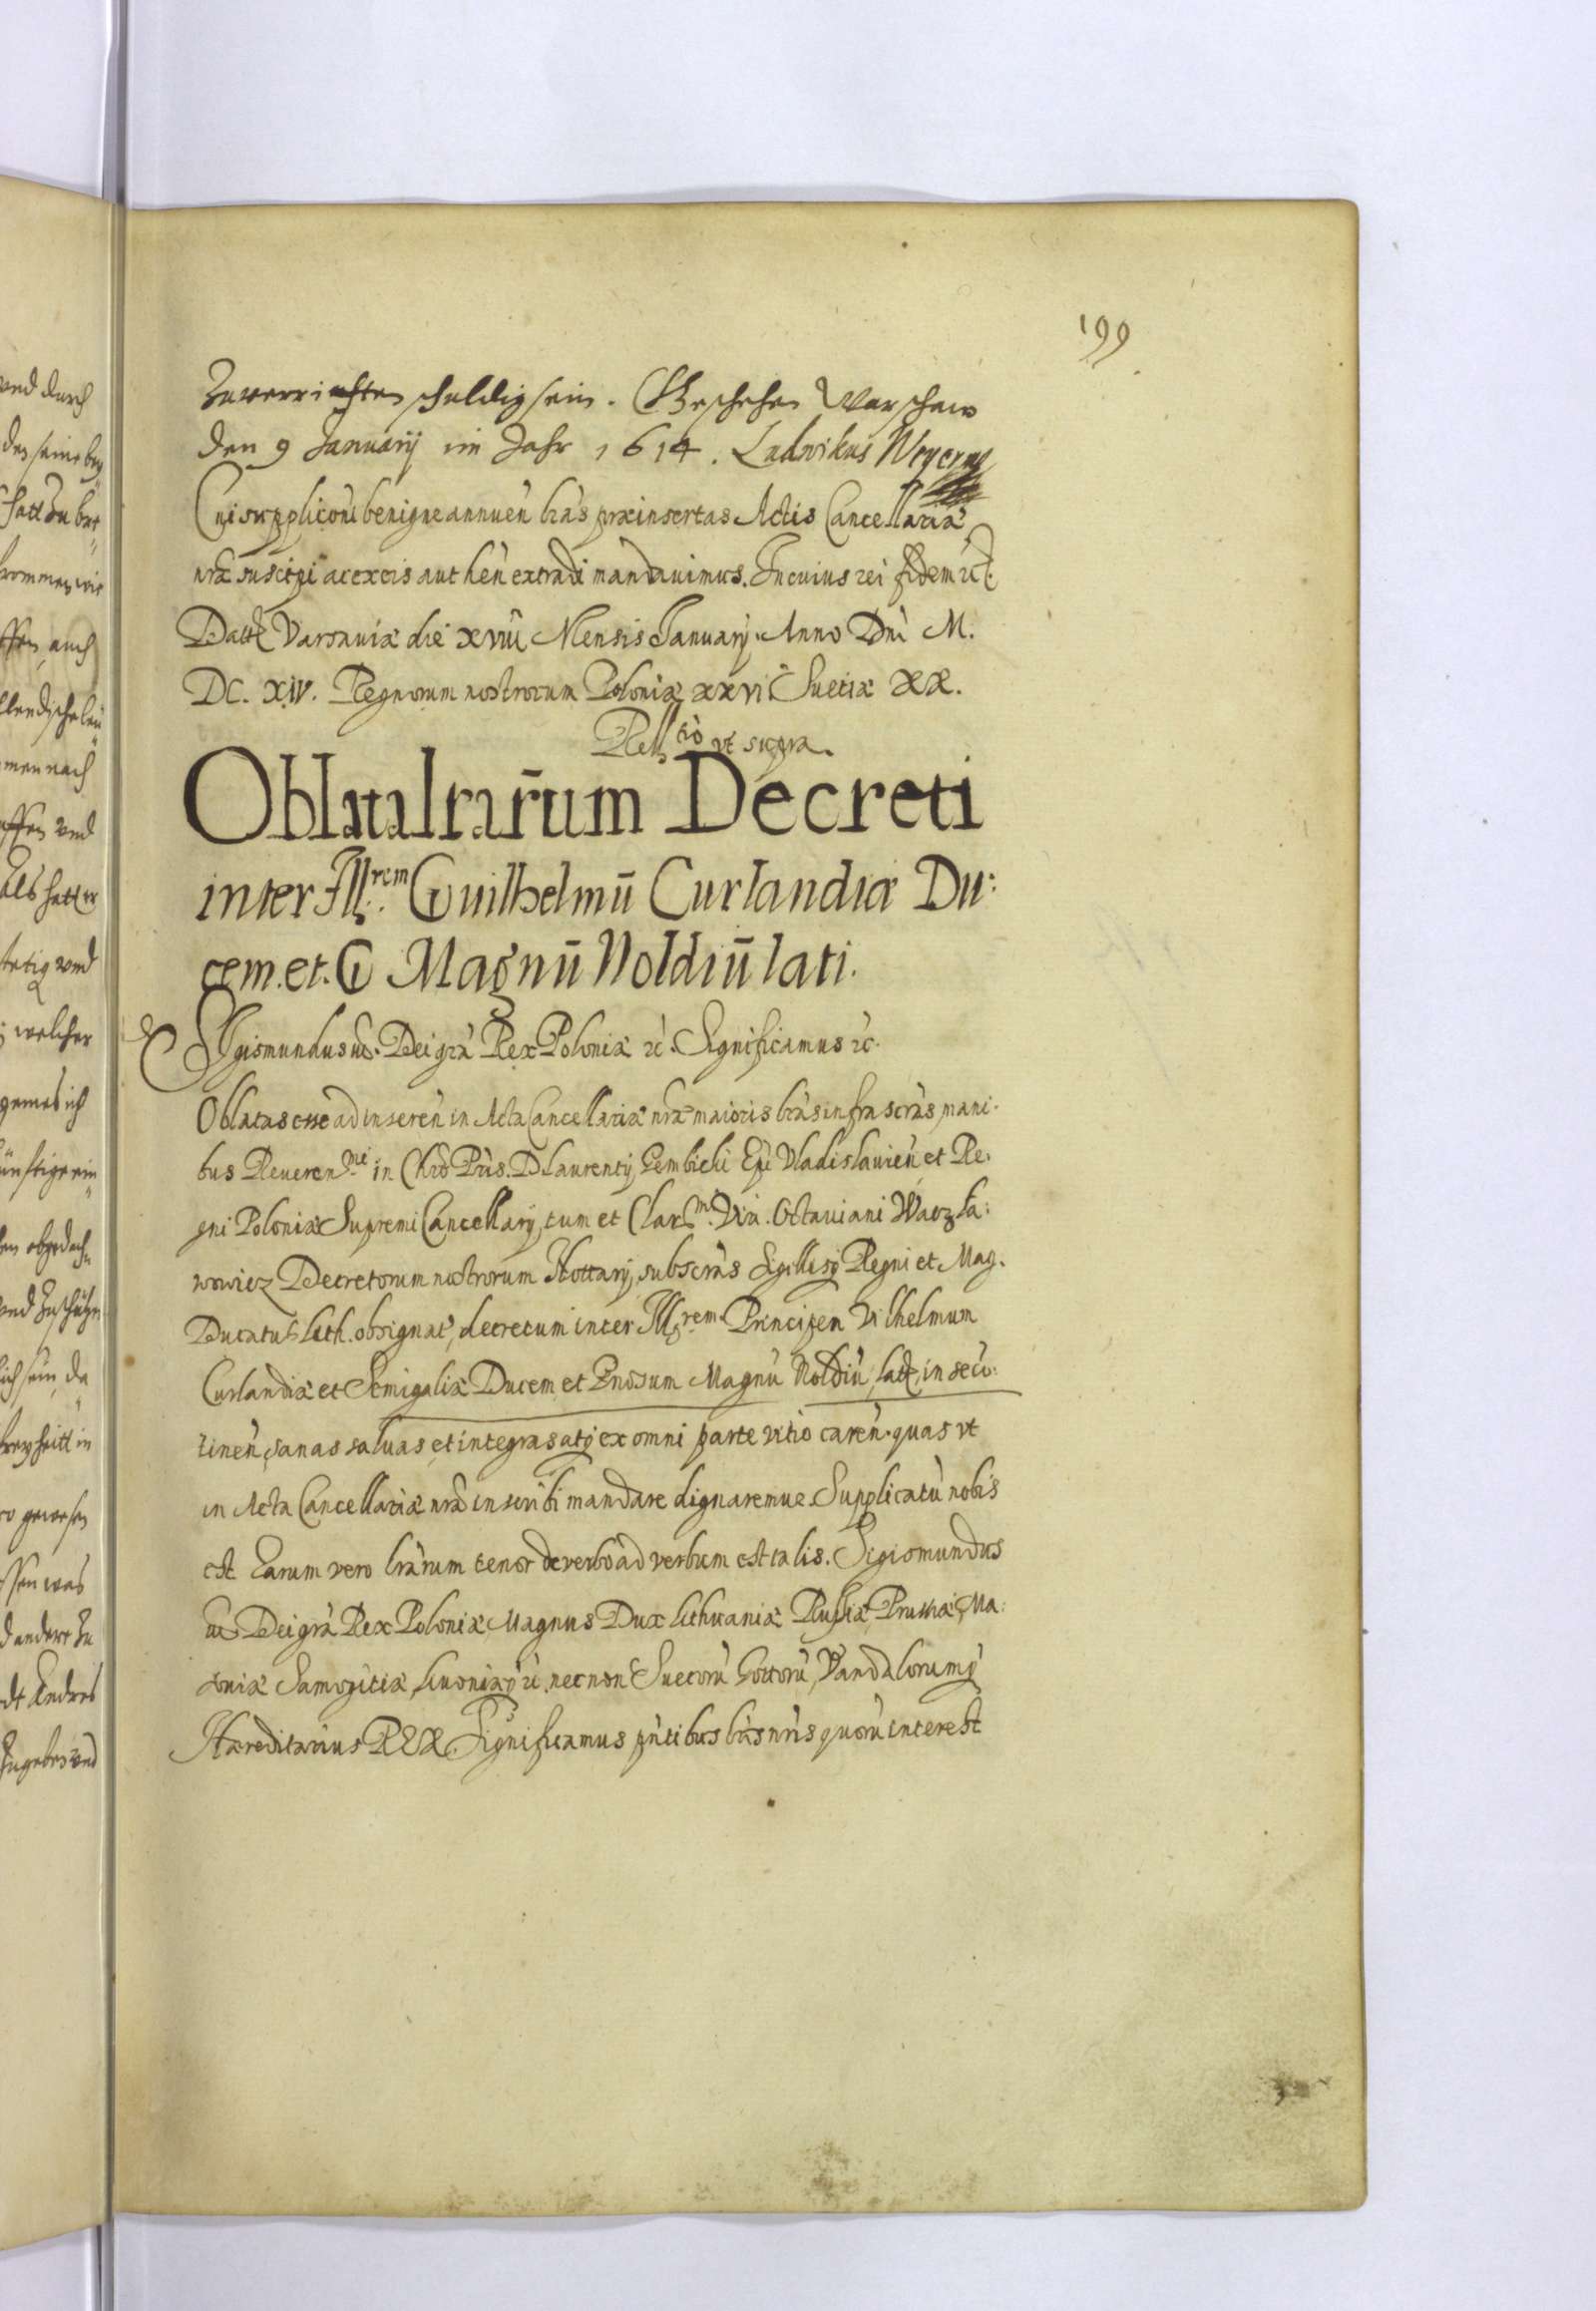 199
Zuverrichten schuldig sein. Geschehen Warschaw
den 9 Januarij im Jahr 1614. Ludwikus Weyerus
Cui suppliconi benigne annuen lras præinsertas Actis Cancellariæ
nræ suscipi ac ex eis authen extradi mandavimus. In cuius rei fidem etc.
Datt Varsaviæ die XVIII Mensis Januarij Anno Dni M.
DC. XIV. Regnorum nostrorum Poloniæ XXVI Suetiæ XX.
Rellatio ut supra.
Oblata lrarum Decreti
inter Ill:rem Guilhelmū Curlandiæ Du:
cem. et. G Magnū Noldiū lati.
Sigismundus III. Dei gra Rex Poloniæ etc. Significamus etc.
Oblatas esse ad inseren in Acta Cancellariæ nræ maioris lras infra scras, mani
bus Reveren mi in Chro Pris. D. Laurentij Gembicki Epi Vladislavien et Re
gni Poloniæ Supremi Cancellarij, tum et Clar mi Viri. Octaviani
wowicz Decretorum nostrorum Nottarij, subscras Sigillisq Regni et Mag.
Ducatus Lith. obsignat, decretum inter Ill rem Principem Vilhelmum
Curlandiæ et Semigaliæ Ducem et Gnosum Magnū Noldiū, latt, in se co:
tinen, sanas salvas et integras atq ex omni parte vitio caren. quas ut
in Acta Cancellariæ nræ inscribi mandare dignaremur. Supplicatū nobis
est Earum vero lrarum tenor de verbo ad verbum est talis. Sigismundus
III Dei gra Rex Poloniæ, Magnus Dux Lithuaniæ Russiæ, Prussiæ, Ma:
soviæ Samogitiæ, Livoniæq etc. necnon Suecorū Gottorū, Vandalorumq
Hæreditarius REX. Significamus pntibus lris nris quorū interest